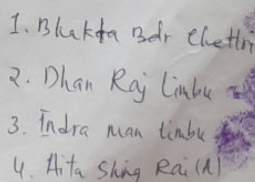 1. Bhakta Bdr Chettri
2. Dhan Raj Limbu
3. Indra man Limbu
4. Hita Shing Rai (A)